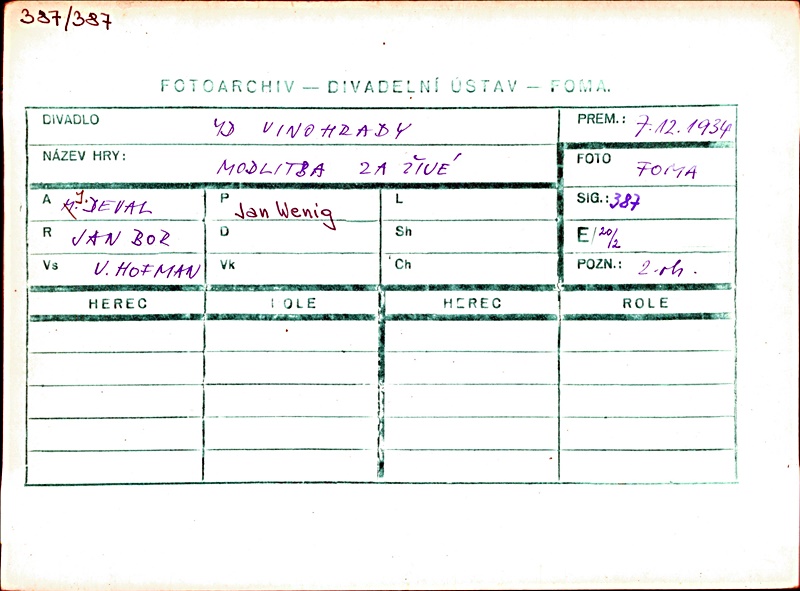 387/387
FOTOARCHIV — DIVADELNÍ ÚSTAV — FOMA.
DIVADLO VINOHRADY PREM.: 7.12.1934
NÁZEV HRY: MODLITBA ZA ŽIVÉ FOTO FOMA
A J. DEVAL P Jan Wenig L SIG.: 387
R JAN BOR D Sh E/20/2
Vs V. HOFMAN Vk Ch POZN.: 2.
HEREC ROLE HEREC ROLE